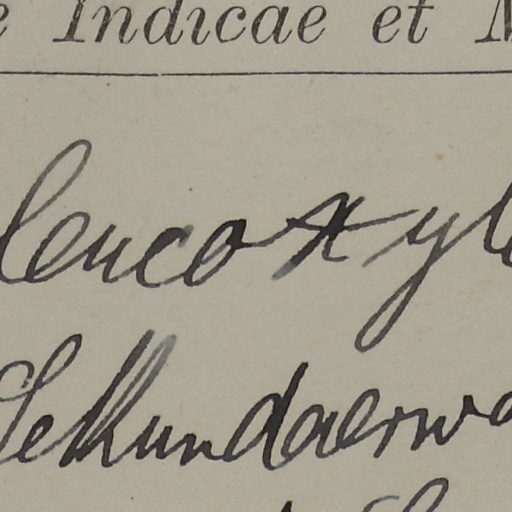 e Indicae et M
leucoxyl
Sekundaerwa